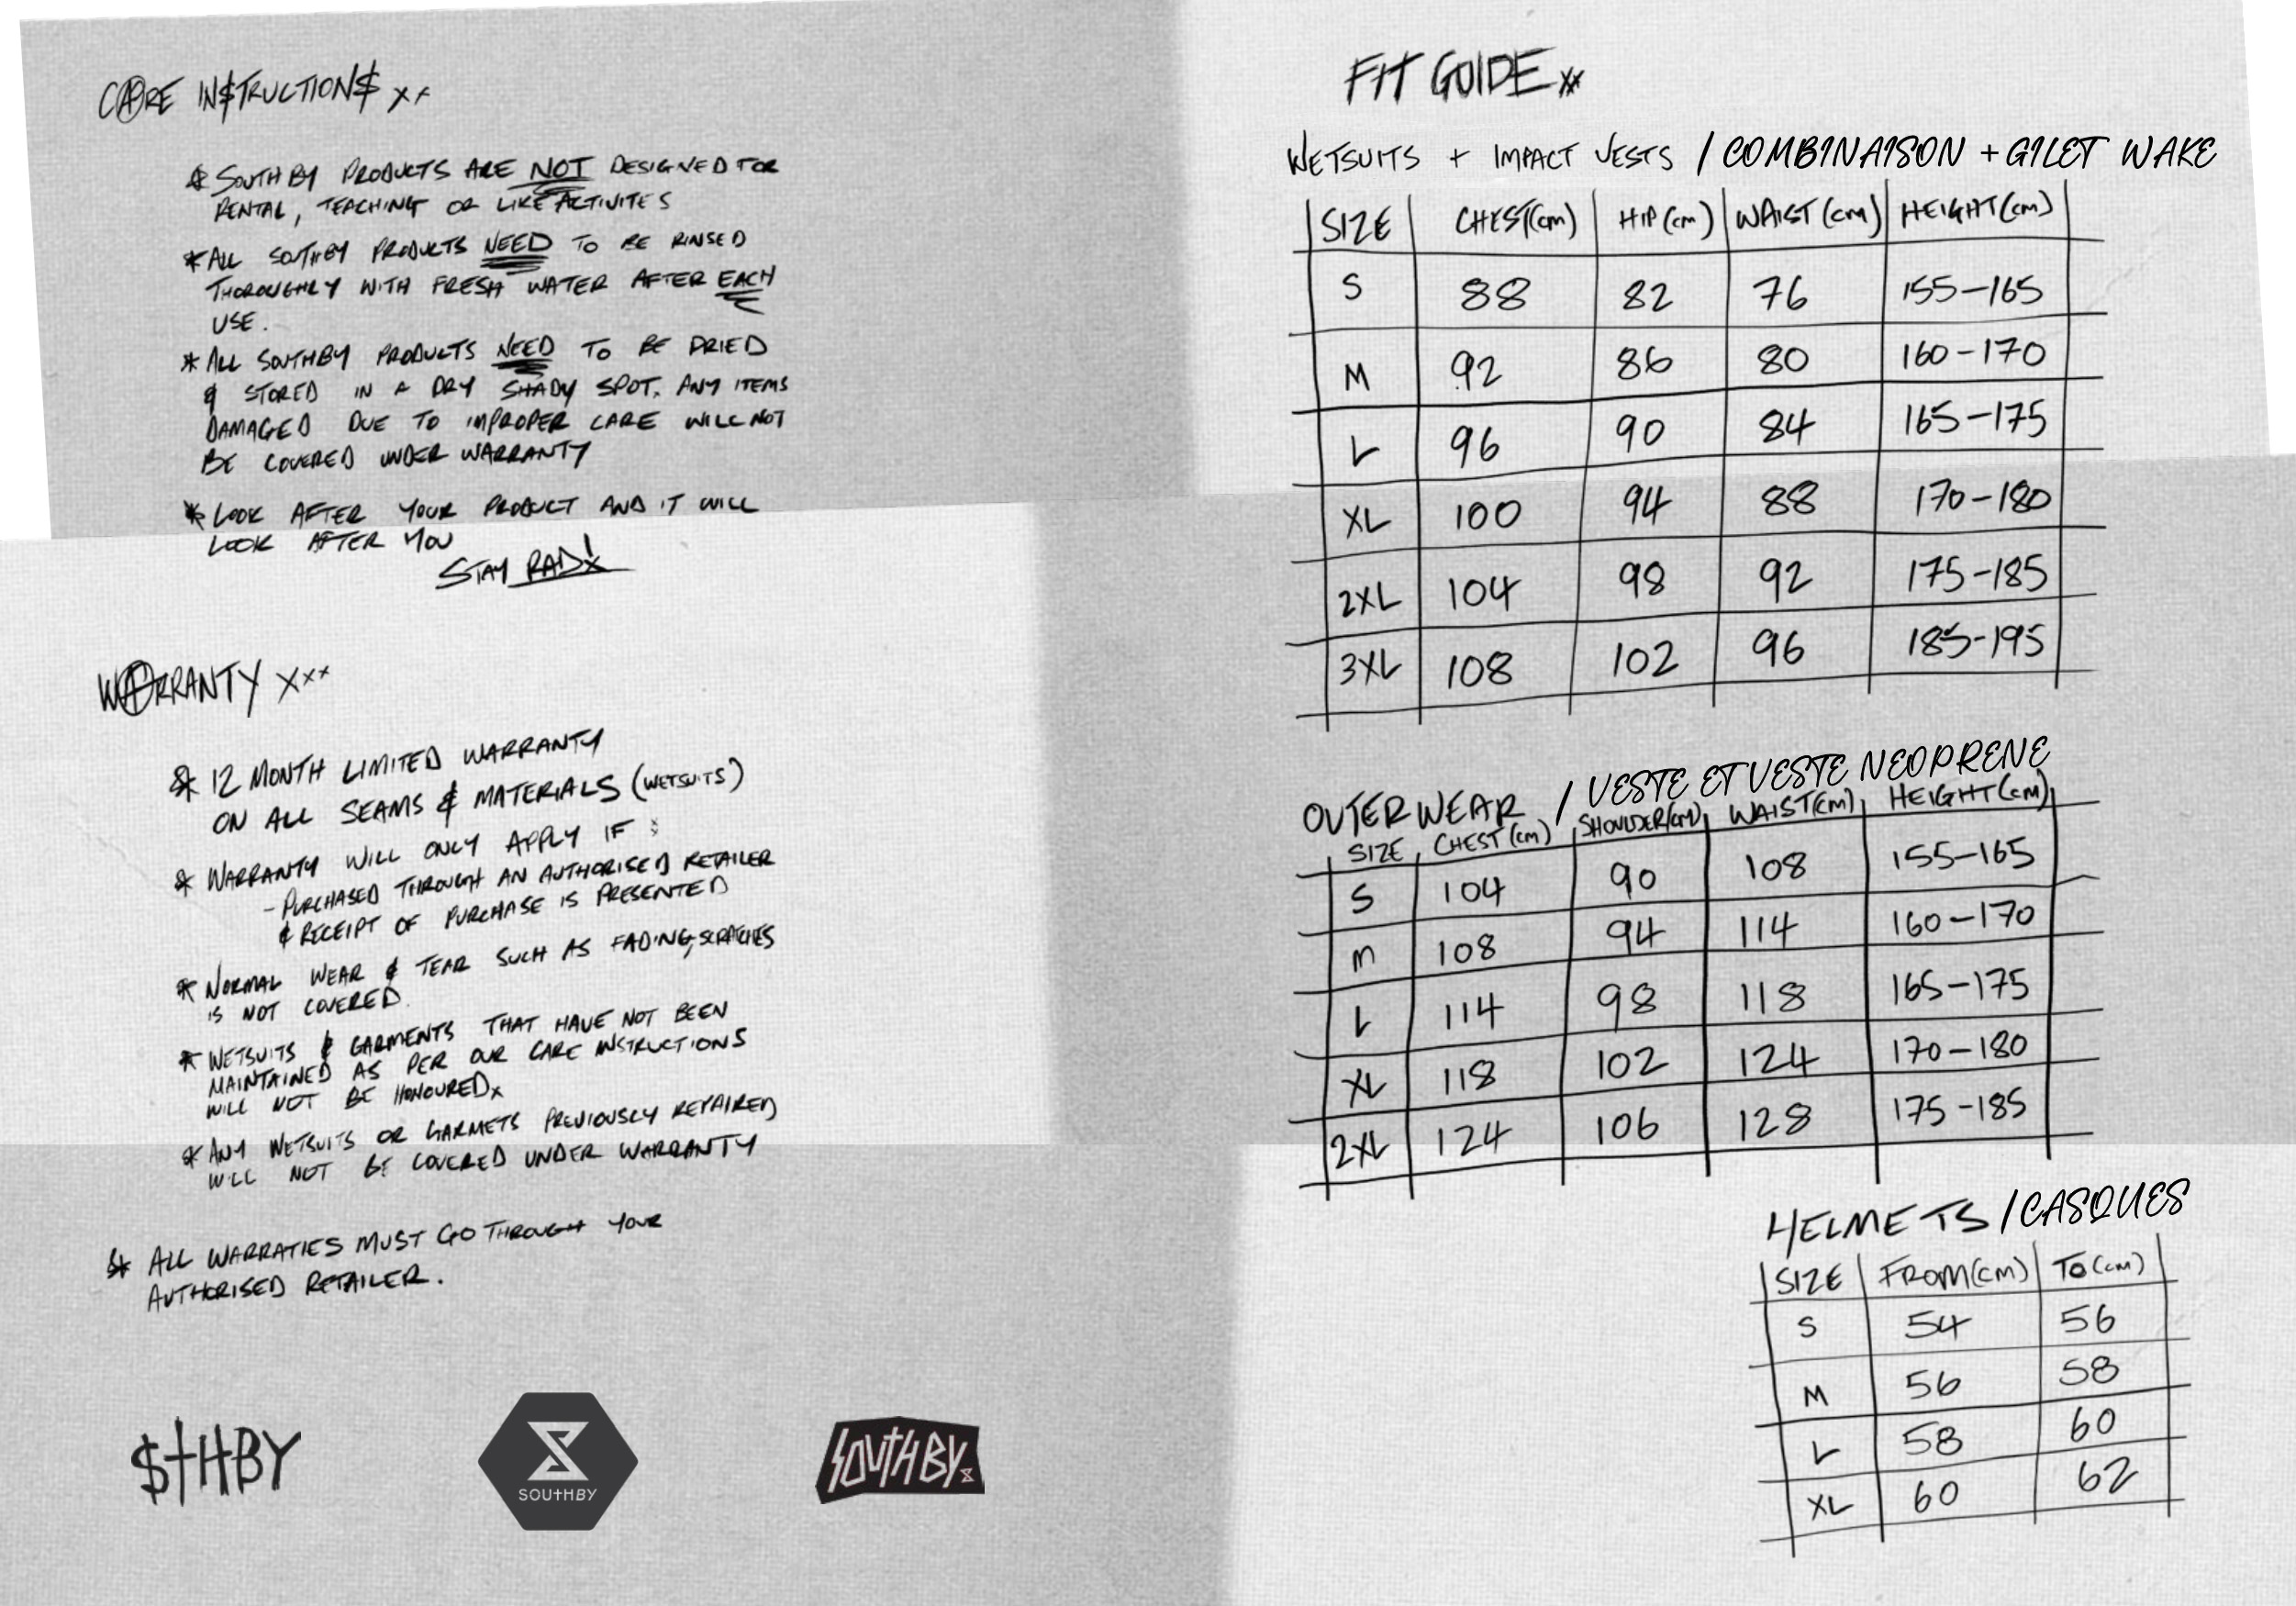 CARE IN$TRUCTION$ xx
* SOUTHBY PRODUCTS ARE NOT DESIGNED FOR
RENTAL, TEACHING OR LIKE ACTIVITES
* ALL SOUTHBY PRODUCTS NEED TO BE RINSED
THOROUGHLY WITH FRESH WATER AFTER EACH
USE.
* ALL SOUTHBY PRODUCTS NEED TO BE DRIED
& STORED IN A DRY SHADY SPOT. ANY ITEMS
DAMAGED DUE TO IMPROPER CARE WILL NOT
BE COVERED UNDER WARRANTY
* LOOK AFTER YOUR PRODUCT AND IT WILL
LOOK AFTER YOU
STAY RAD!x
WARRANTY xxx
* 12 MONTH LIMITED WARRANTY
ON ALL SEAMS & MATERIALS (WETSUITS)
* WARRANTY WILL ONLY APPLY IF :
- PURCHASED THROUGH AN AUTHORISED RETAILER
& RECEIPT OF PURCHASE IS PRESENTED
* NORMAL WEAR & TEAR SUCH AS FADING, SCRATCHES
IS NOT COVERED.
* WETSUITS & GARMENTS THAT HAVE NOT BEEN
MAINTAINED AS PER OUR CARE INSTRUCTIONS
WILL NOT BE HONOURED x
* ANY WETSUITS OR GARMETS PREVIOUSLY REPAIRED
WILL NOT BE COVERED UNDER WARRANTY
* ALL WARRATIES MUST GO THROUGH YOUR
AUTHORISED RETAILER.
$THBY
SOUTHBY
SOUTHBY
FIT GUIDE xx
WETSUITS + IMPACT VESTS / COMBINAISON + GILET WAKE
SIZE CHEST(cm) HIP(cm) WAIST(cm) HEIGHT(cm)
S 88 82 76 155-165
M 92 86 80 160-170
L 96 90 84 165-175
XL 100 94 88 170-180
2XL 104 98 92 175-185
3XL 108 102 96 185-195
OUTERWEAR / VESTE ET VESTE NEOPRENE
SIZE CHEST(cm) SHOULDER(cm) WAIST(cm) HEIGHT(cm)
S 104 90 108 155-165
M 108 94 114 160-170
L 114 98 118 165-175
XL 118 102 124 170-180
2XL 124 106 128 175-185
HELMETS / CASQUES
SIZE FROM(cm) TO(cm)
S 54 56
M 56 58
L 58 60
XL 60 62